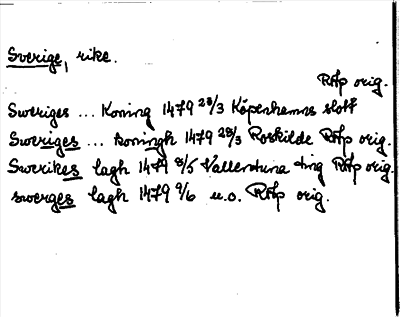 Sverige, rike.
RAp orig.
Sweriges ... Koning 1479 28/3 Köpenhamns slott
Sweriges ... koningh 1479 28/3 Roskilde RAp orig.
Swerikes lagh 1479 8/5 Vallentuna ting RAp orig.
swerges lagh 1479 9/6 u.o. RAp orig.